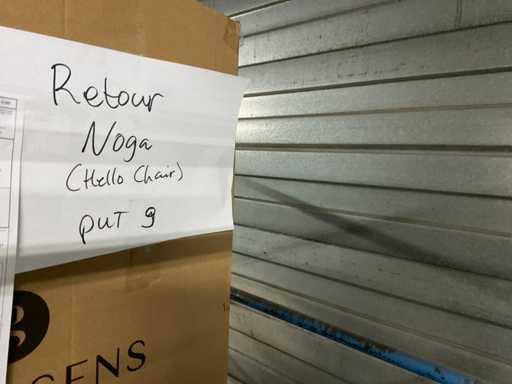 Retour
Noga
(Hello Chair)
PUT 9
GENS